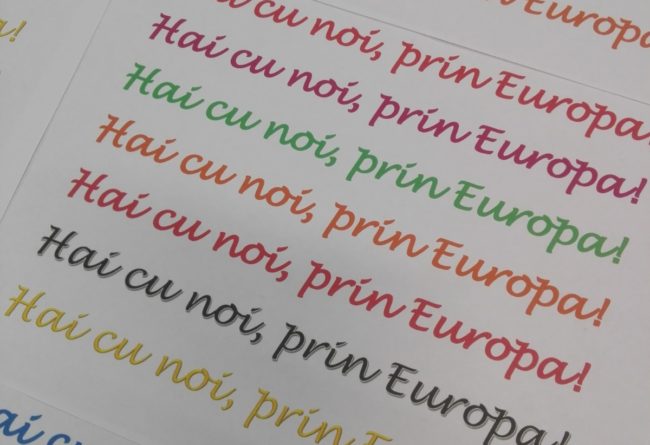 Hai cu noi, prin Europa!
Hai cu noi, prin Europa!
Hai cu noi, prin Europa!
Hai cu noi, prin Europa!
Hai cu noi, prin Europa!
Hai cu noi, prin Europa!
Hai cu noi, prin Europa!